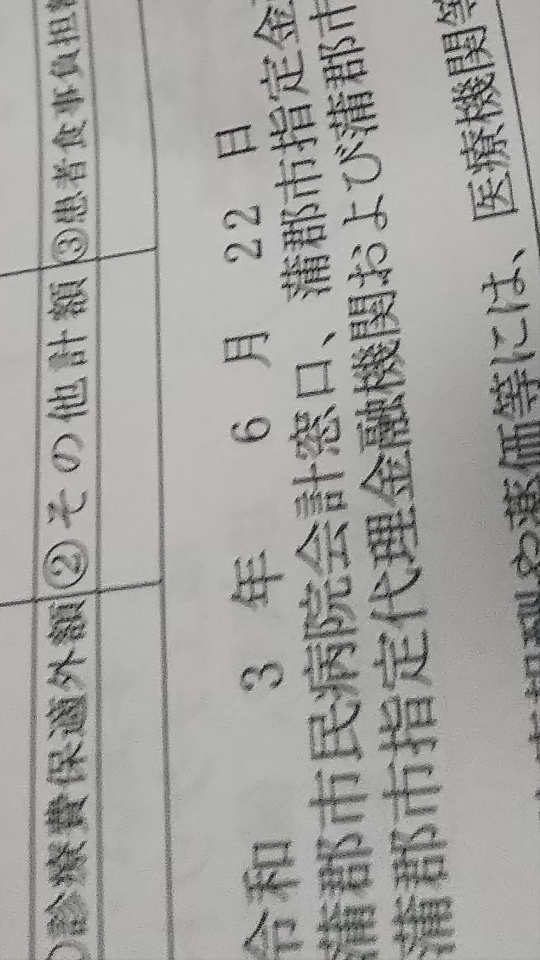 診療費保適外額 ②その他計額 ③患者食事負担
令和 3 年 6 月 22 日
蒲郡市民病院会計窓口、蒲郡市指定金
蒲郡市指定代理金融機関および蒲郡市
や薬価等には、医療機関等